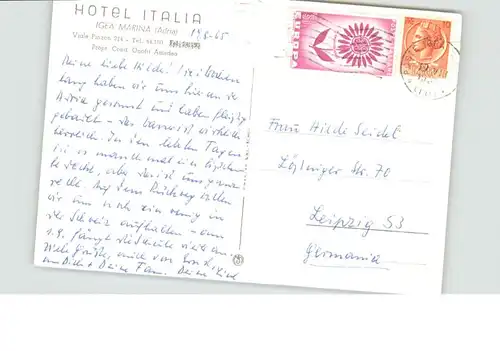 HOTEL ITALIA
IGEA MARINA (Adria)
Viale Pinzon 216 - Tel. 44.391
Propr. Cond. Donfri Amedeo
19.8.65
Meine liebe Hilde! Drei Wochen
lang haben wir uns hier an der
Adria gesonnt und haben fleißig
gebadet - das war wirklich
herrlich. In den letzten Tagen
ist es manchmal ein bißchen
aber das ist uns ganz
recht. Auf dem Rückweg wollen
wir uns noch ein wenig in
der Schweiz aufhalten - am
1.9. fängt die Schule wieder an.
Viele Grüße, auch von
an Dich & Deine Fam. Deine
EUROPA
Frau Hilde Seidel
Str. 70
Leipzig S3
Germania